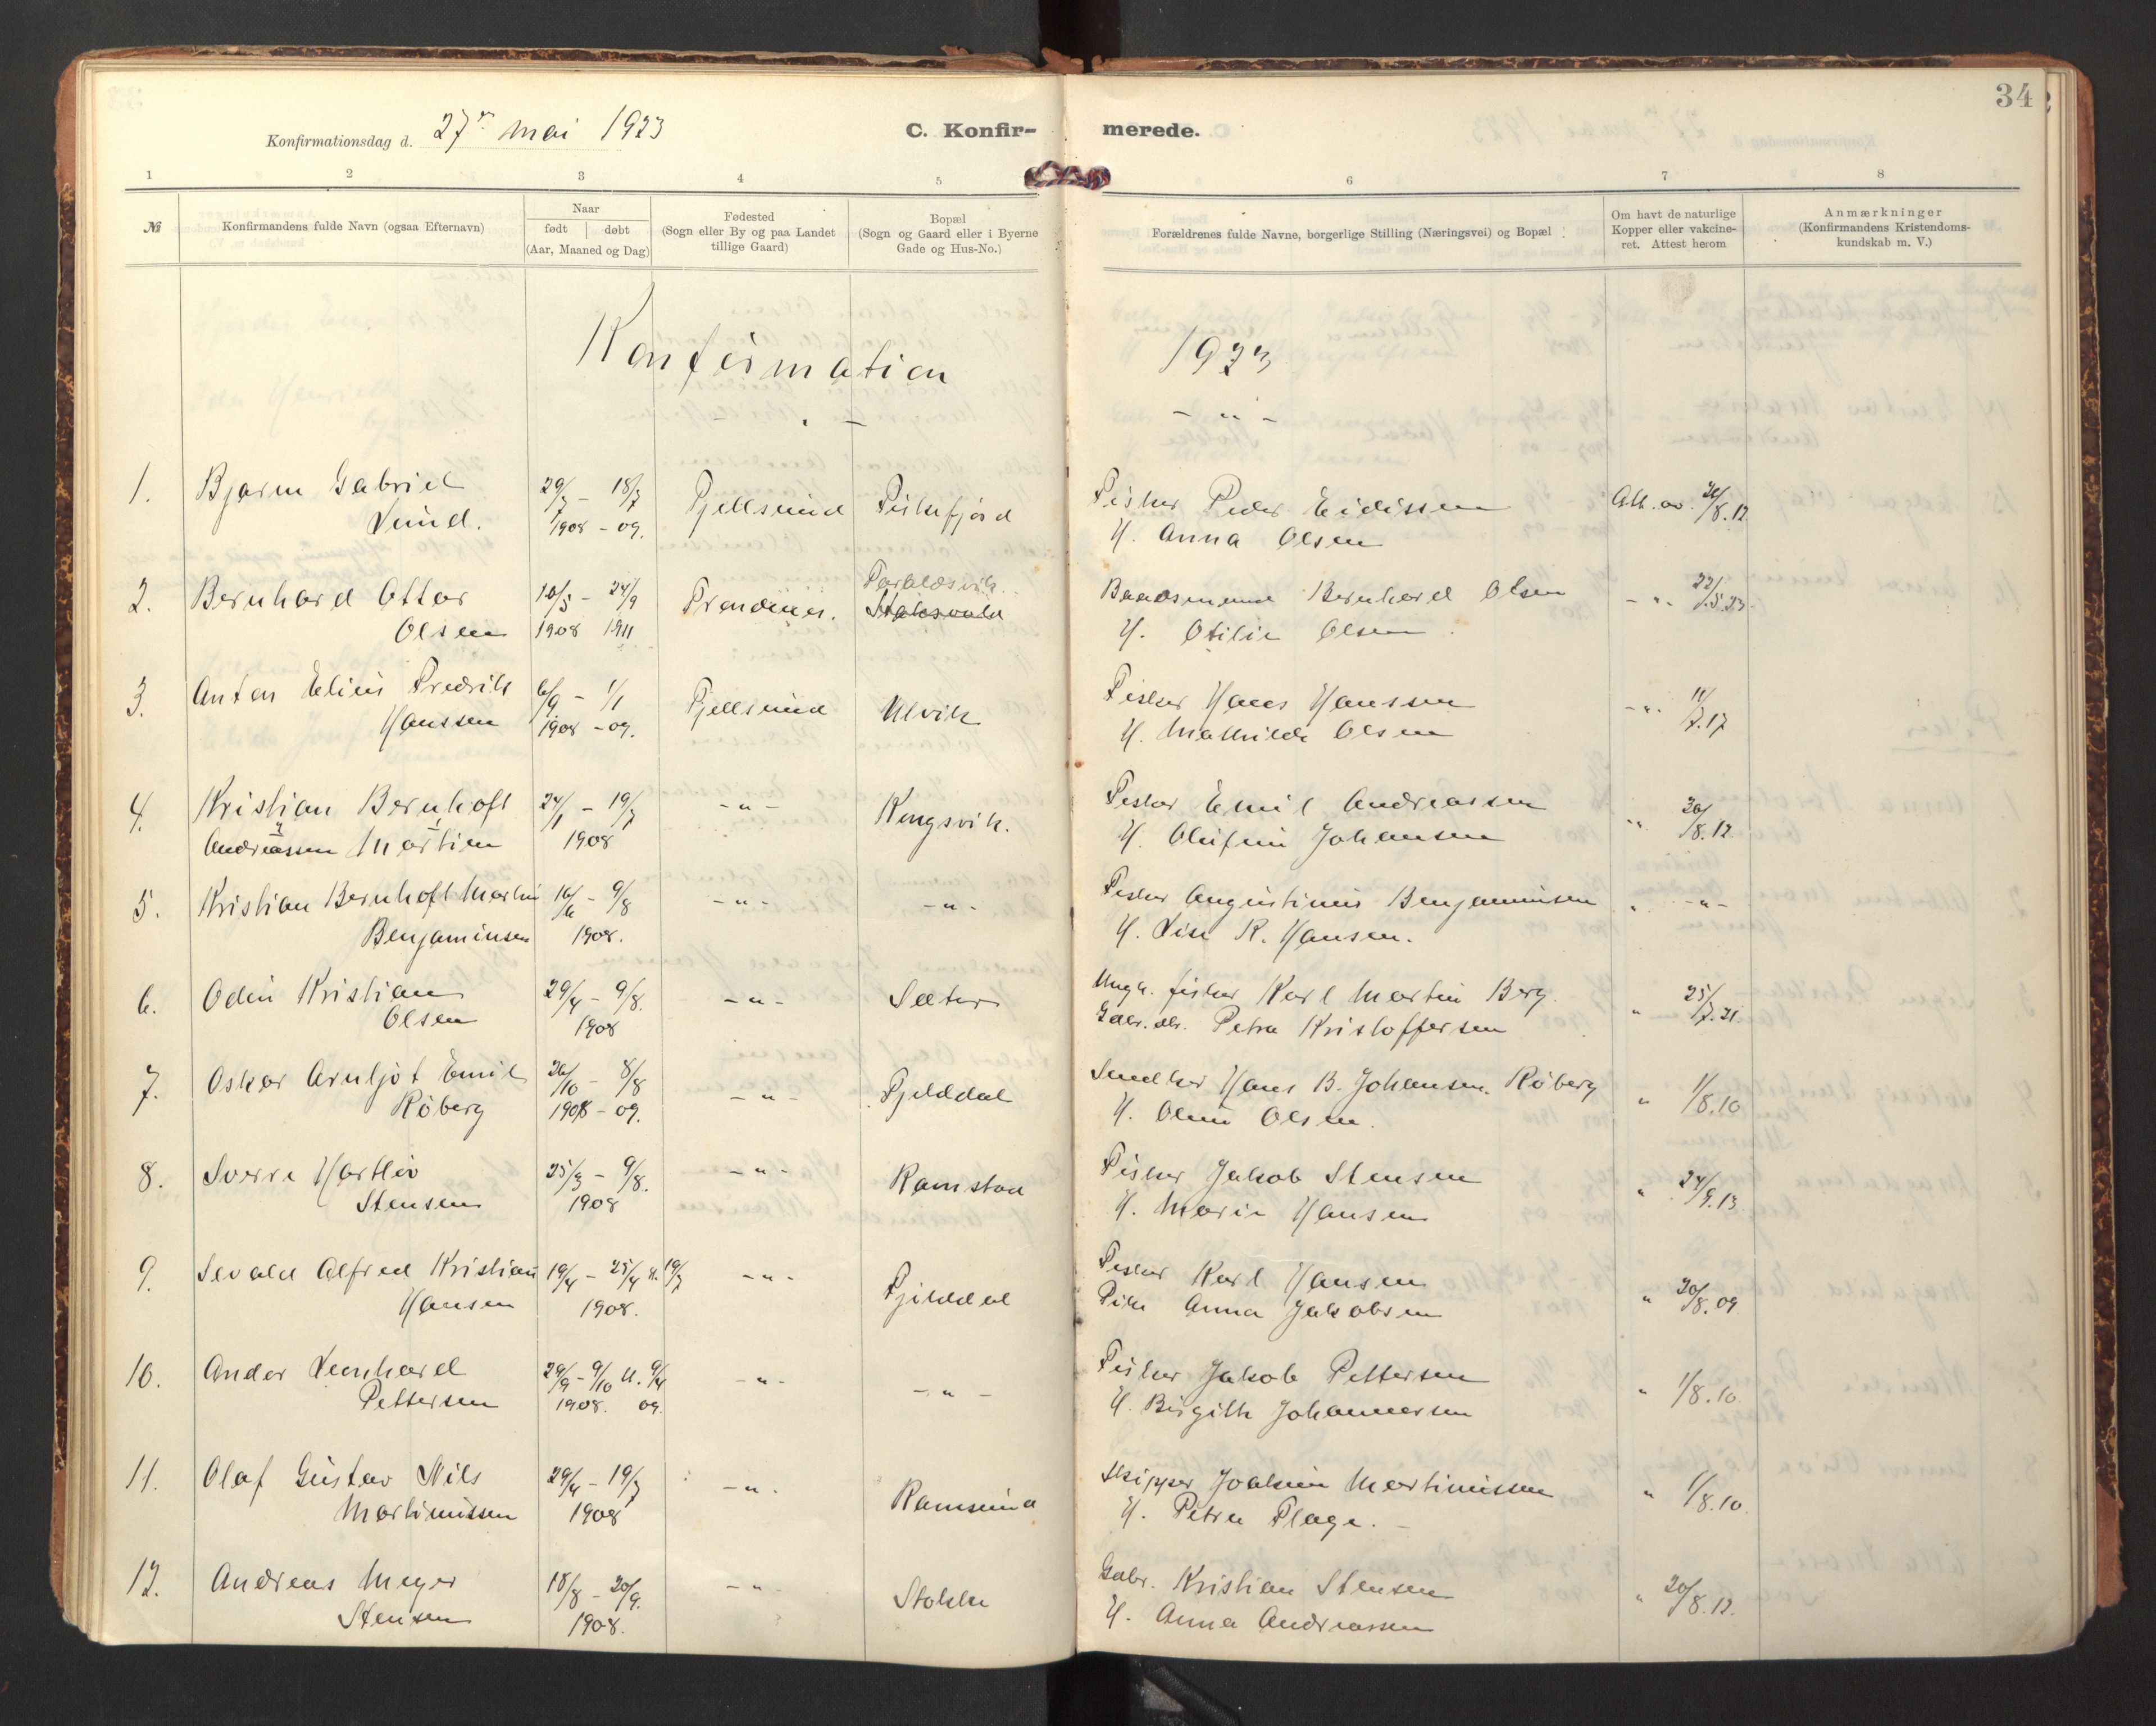 34
Konfirmationsdag d. 27de mai 1923 C. Konfir- merede.
1 2 3 4 5 6 7 8
№ Konfirmandens fulde Navn (ogsaa Efternavn) Naar født døbt (Aar, Maaned og Dag) Fødested (Sogn eller By og paa Landet tillige Gaard) Bopæl (Sogn og Gaard eller i Byerne Gade og Hus-No.) Forældrenes fulde Navne, borgerlige Stilling (Næringsvei) og Bopæl Om havt de naturlige Kopper eller vakcineret. Attest herom Anmærkninger (Konfirmandens Kristendomskundskab m. V.)
Konfirmation 1923
- " -
1. Bjarne Gabriel 29/7 - 18/7 Fjellsund Fiskefjord Fisker Peder Eidissen Att. av 20/8.12
Lund. 1908 - 09. H. Anna Olsen
2. Bernhard Ottar 10/5 - 24/9 Trondenes. Taraldsvik. Baadsmand Bernhard Olsen - " - 22/5.23
Olsen 1908 1911 H. Otilie Olsen
3. Anton Elius Fredrik 6/9 - 1/1 Fjellsund Ulvik Fisker Hans Hanssen - " - 11/7.17
Hanssen 1908 - 09. H. Mathilde Olsen
4. Kristian Bernhoft 24/1 - 19/7 - " - Kongsvik. Fisker Emil Andreassen " 20/8.12
Andreassen Martin 1908 H. Olufine Johansen
5. Kristian Bernhoft Martin 16/6 - 9/8 - " - - " - Fisker Augustinus Benjaminsen " - " -
Benjaminsen 1908. H. Lise R. Hansen.
6. Odin Kristian 29/4 - 9/8. - " - Sæter Ungk. fisker Karl Martin Berg. " 25/7.21
Olsen 1908 Gdbr. dtr. Petra Kristoffersen
7. Oskar Arnljot Emil 26/10 - 8/8 - " - Fjelddal Snedker Hans B. Johansen. Röberg " 1/8.10
Röberg 1908 - 09. H. Oline Olsen.
8. Sverre Hartlev 25/3 - 9/8. - " - Ramstad Fisker Jakob Stensen " 24/9.13
Stensen 1908 H. Marie Hansen
9. Sevald Alfred Kristian 19/4 - 25/4 K. 19/7 - " - Fjelddal Fisker Karl Hansen " 20/8.09
Hansen 1908. Pike Anna Jakobsen
10. Ander Leonhard 29/9 - 9/10 K. 9/4 - " - - " - Fisker Jakob Pettersen " 1/8.10
Pettersen 1908. 09. H. Birgith Johannesen
11. Olaf Gustav Nils 29/4 - 19/7 - " - Ramsund Skipper Joakim Martinussen " 1/8.10
Martinussen 1908 H. Petra Plage.
12. Andreas Meyer 18/8 - 20/9. - " - Stokke Gdbr. Kristian Stensen " 20/8.12.
Stensen 1908. H. Anna Andreassen